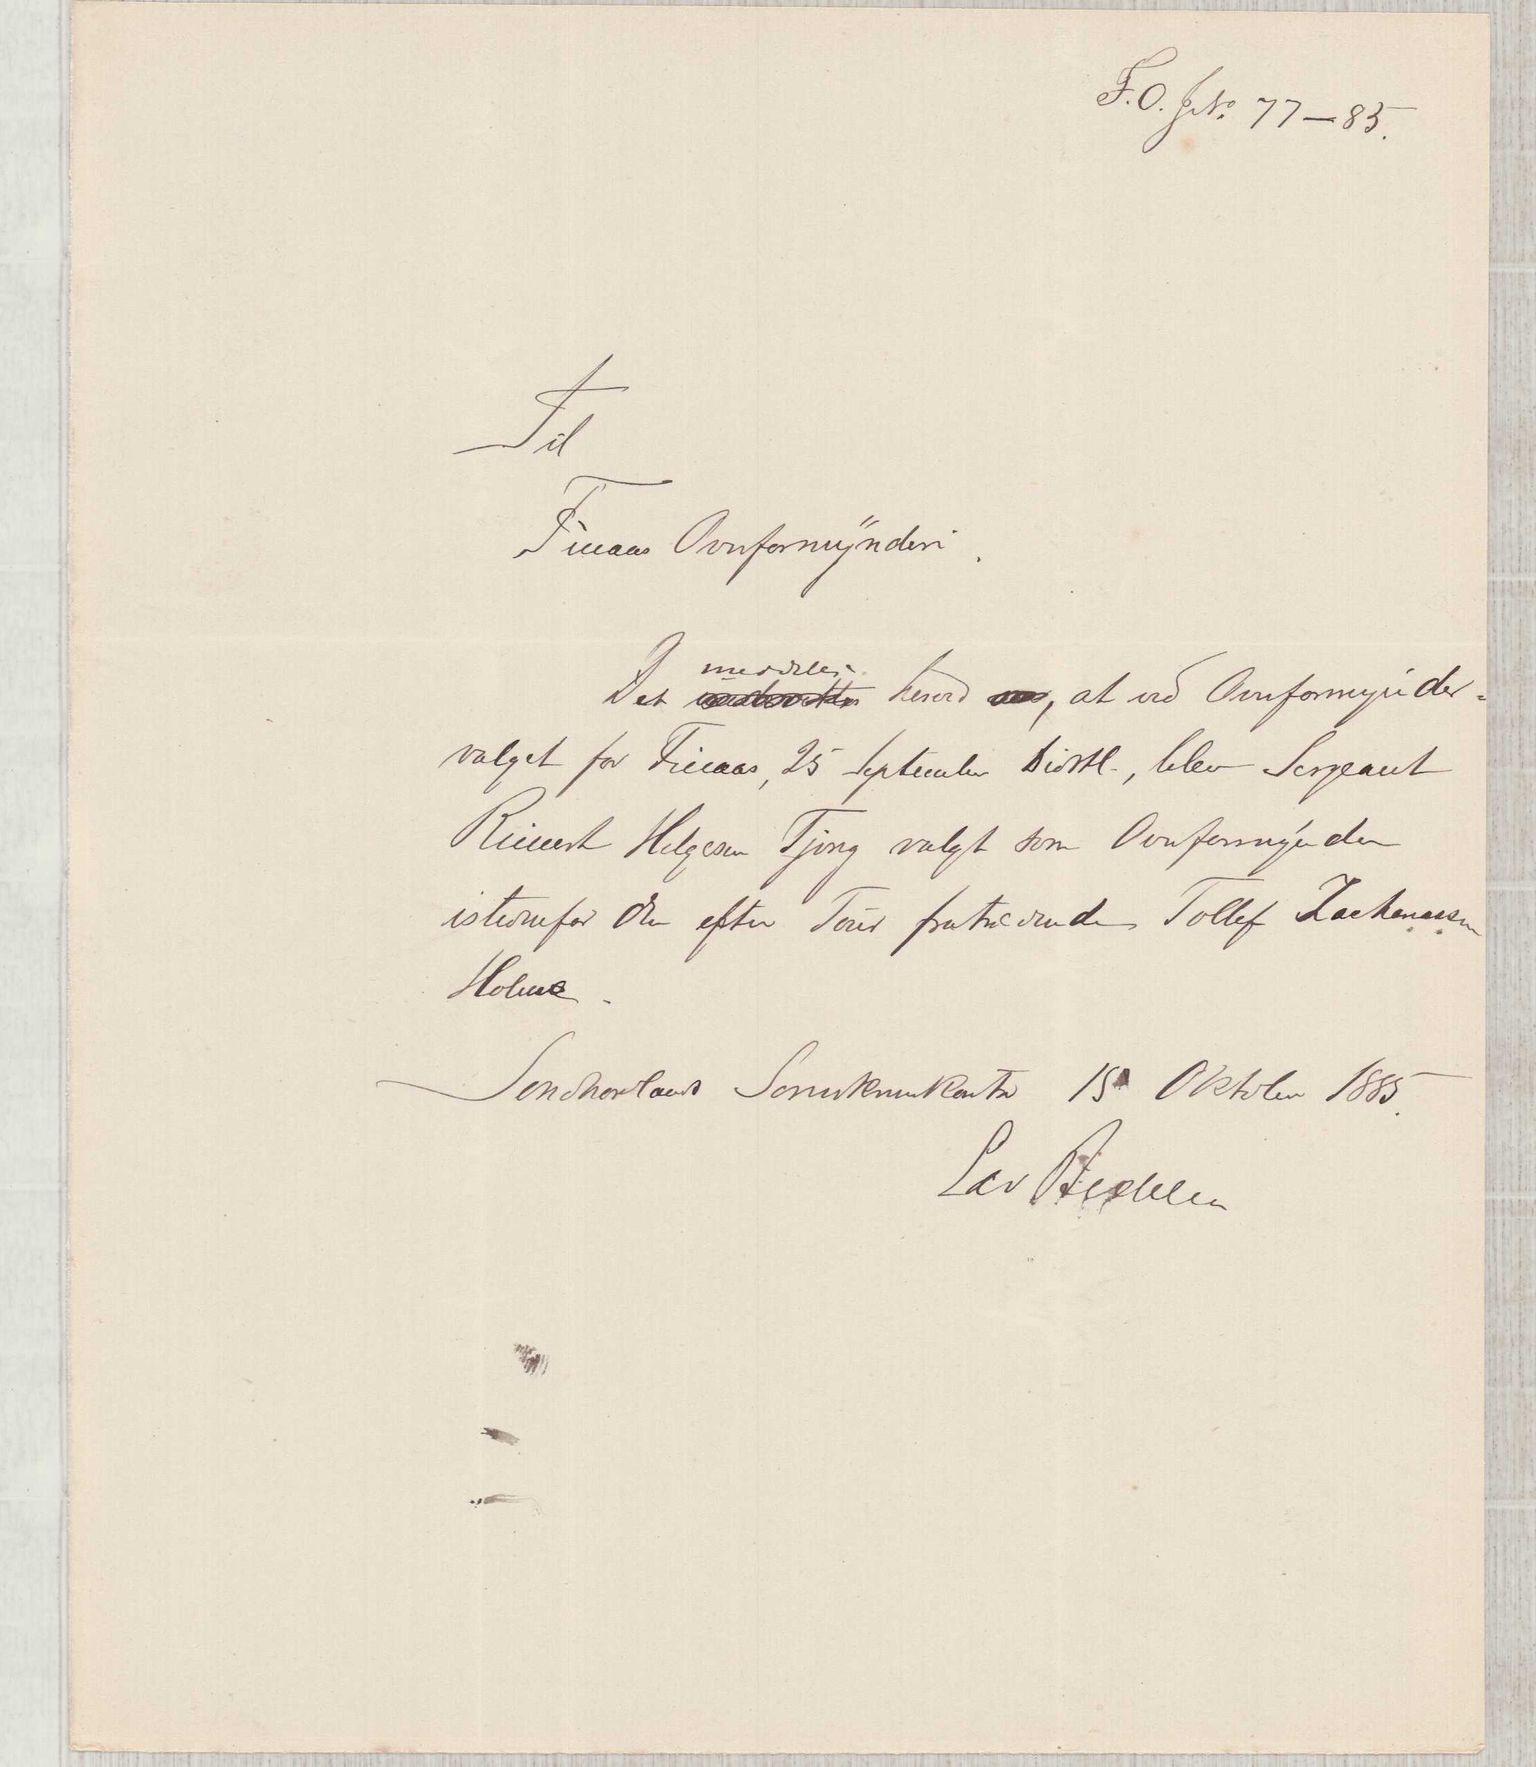 F.O. J.No. 77–85.
Til
Finaas Overformynderi.
meddeles
Det herved, at ved Overformynder-
valget for Finaas, 25 September sidstl., blev Sergeant
Rikert Helgesen Tjong valgt som Overformynder
istedenfor den efter Tour fratrædende Tollef Zachariassen
Holme.
Søndhordlands Sorenskriverkontor 15 Oktober 1885.